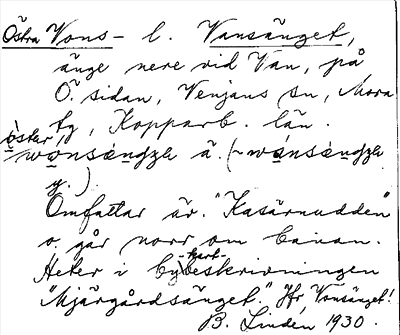 Östra Vons- l. Vansänget,
änge nere vid Van, på
Ö. sidan, Venjans sn, Mora
tg, Kopparb. län.
öster wonsèndzh ä. (~wánsèndzh
y.)
Omfattar äv. "Kasärnudden"
o. går norr om banan.
Heter i bykartbeskrivningen
"Mjärgårdsänget." Jfr Vonsänget!
B. Linden 1930.